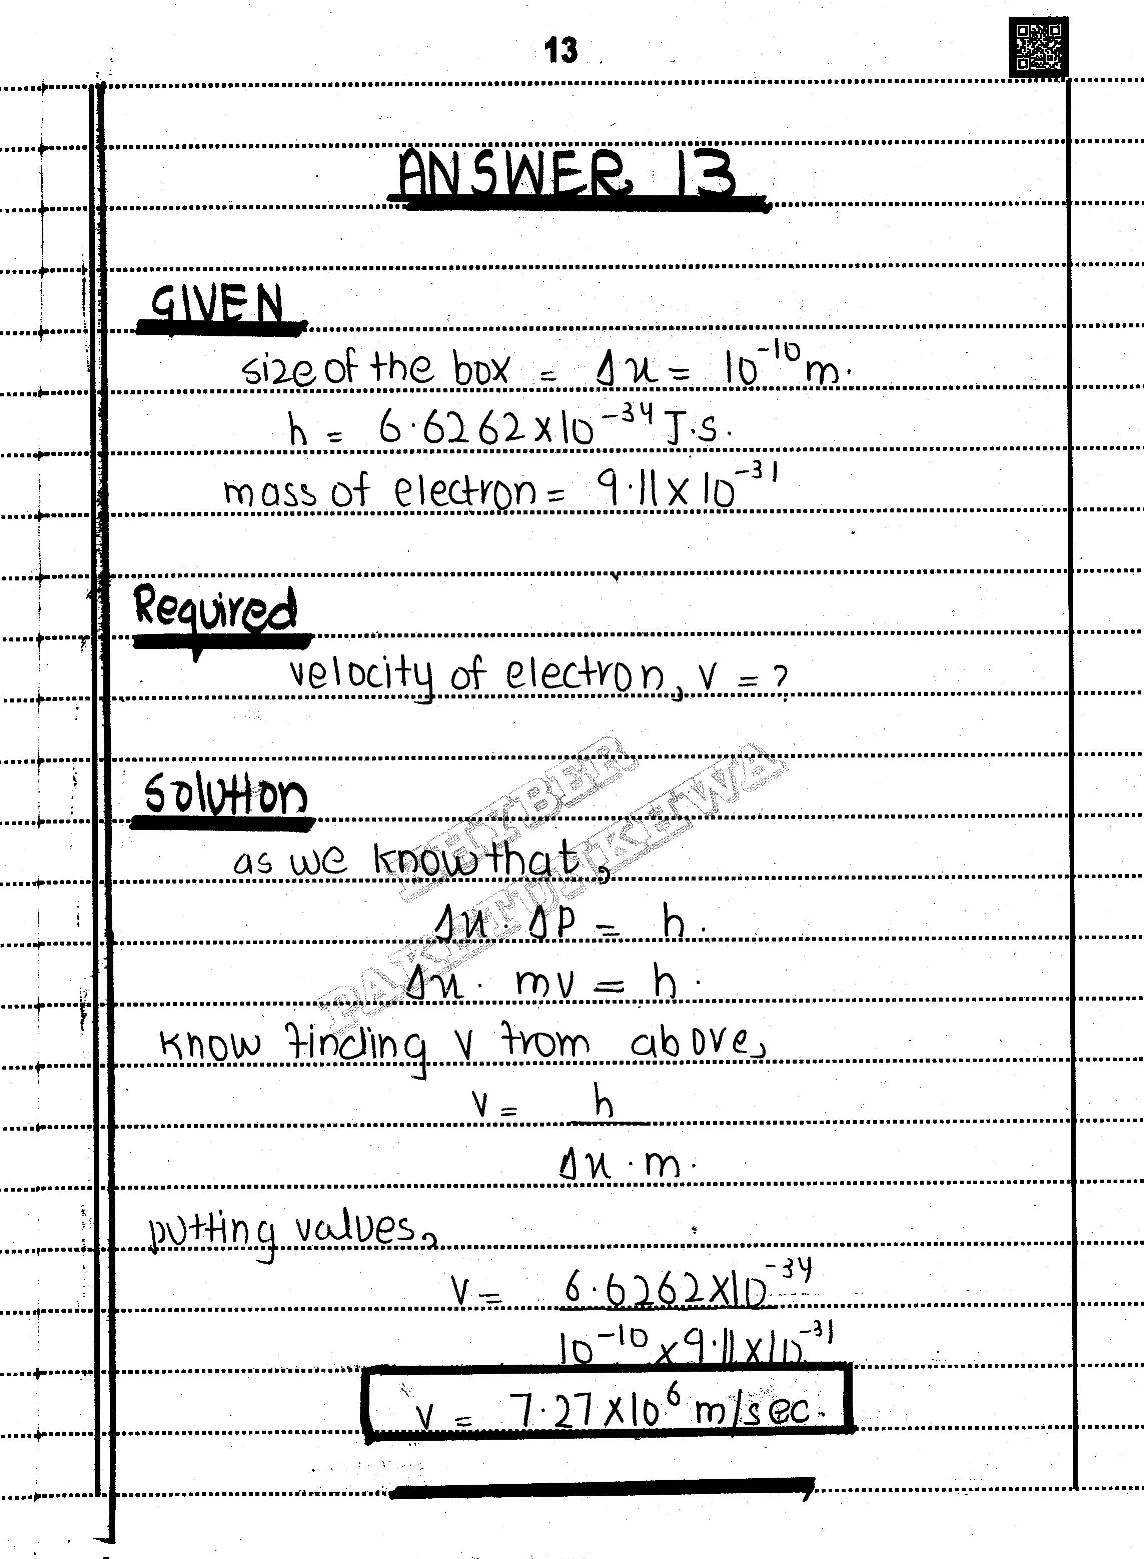 13
ANSWER 13
GIVEN
size of the box = Δx = 10⁻¹⁰ m.
h = 6.6262×10⁻³⁴ J.s.
mass of electron = 9.11×10⁻³¹
Required
velocity of electron, v = ?
Solution
as we know that,
Δx . ΔP = h.
Δx . mv = h.
know finding v from above,
v = h
Δx . m.
putting values,
v = 6.6262×10⁻³⁴
10⁻¹⁰ × 9.11×10⁻³¹
v = 7.27×10⁶ m/sec.
KHYBER
PAKHTUNKHWA